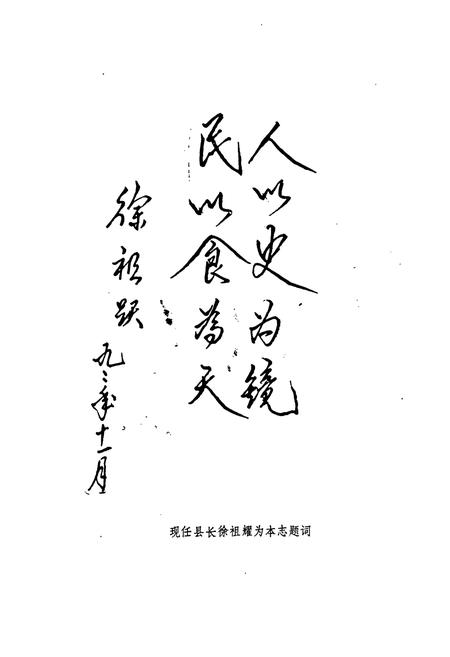 人以史为镜
民以食为天
徐祖跃
九二年十一月
现任县长徐祖耀为本志题词